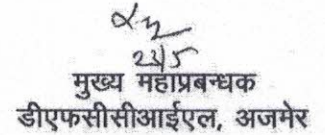 23/5
मुख्य महाप्रबन्धक
डीएफसीसीआईएल, अजमेर